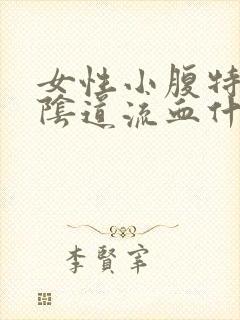 女性小腹特
陰道流血什
李賢宰